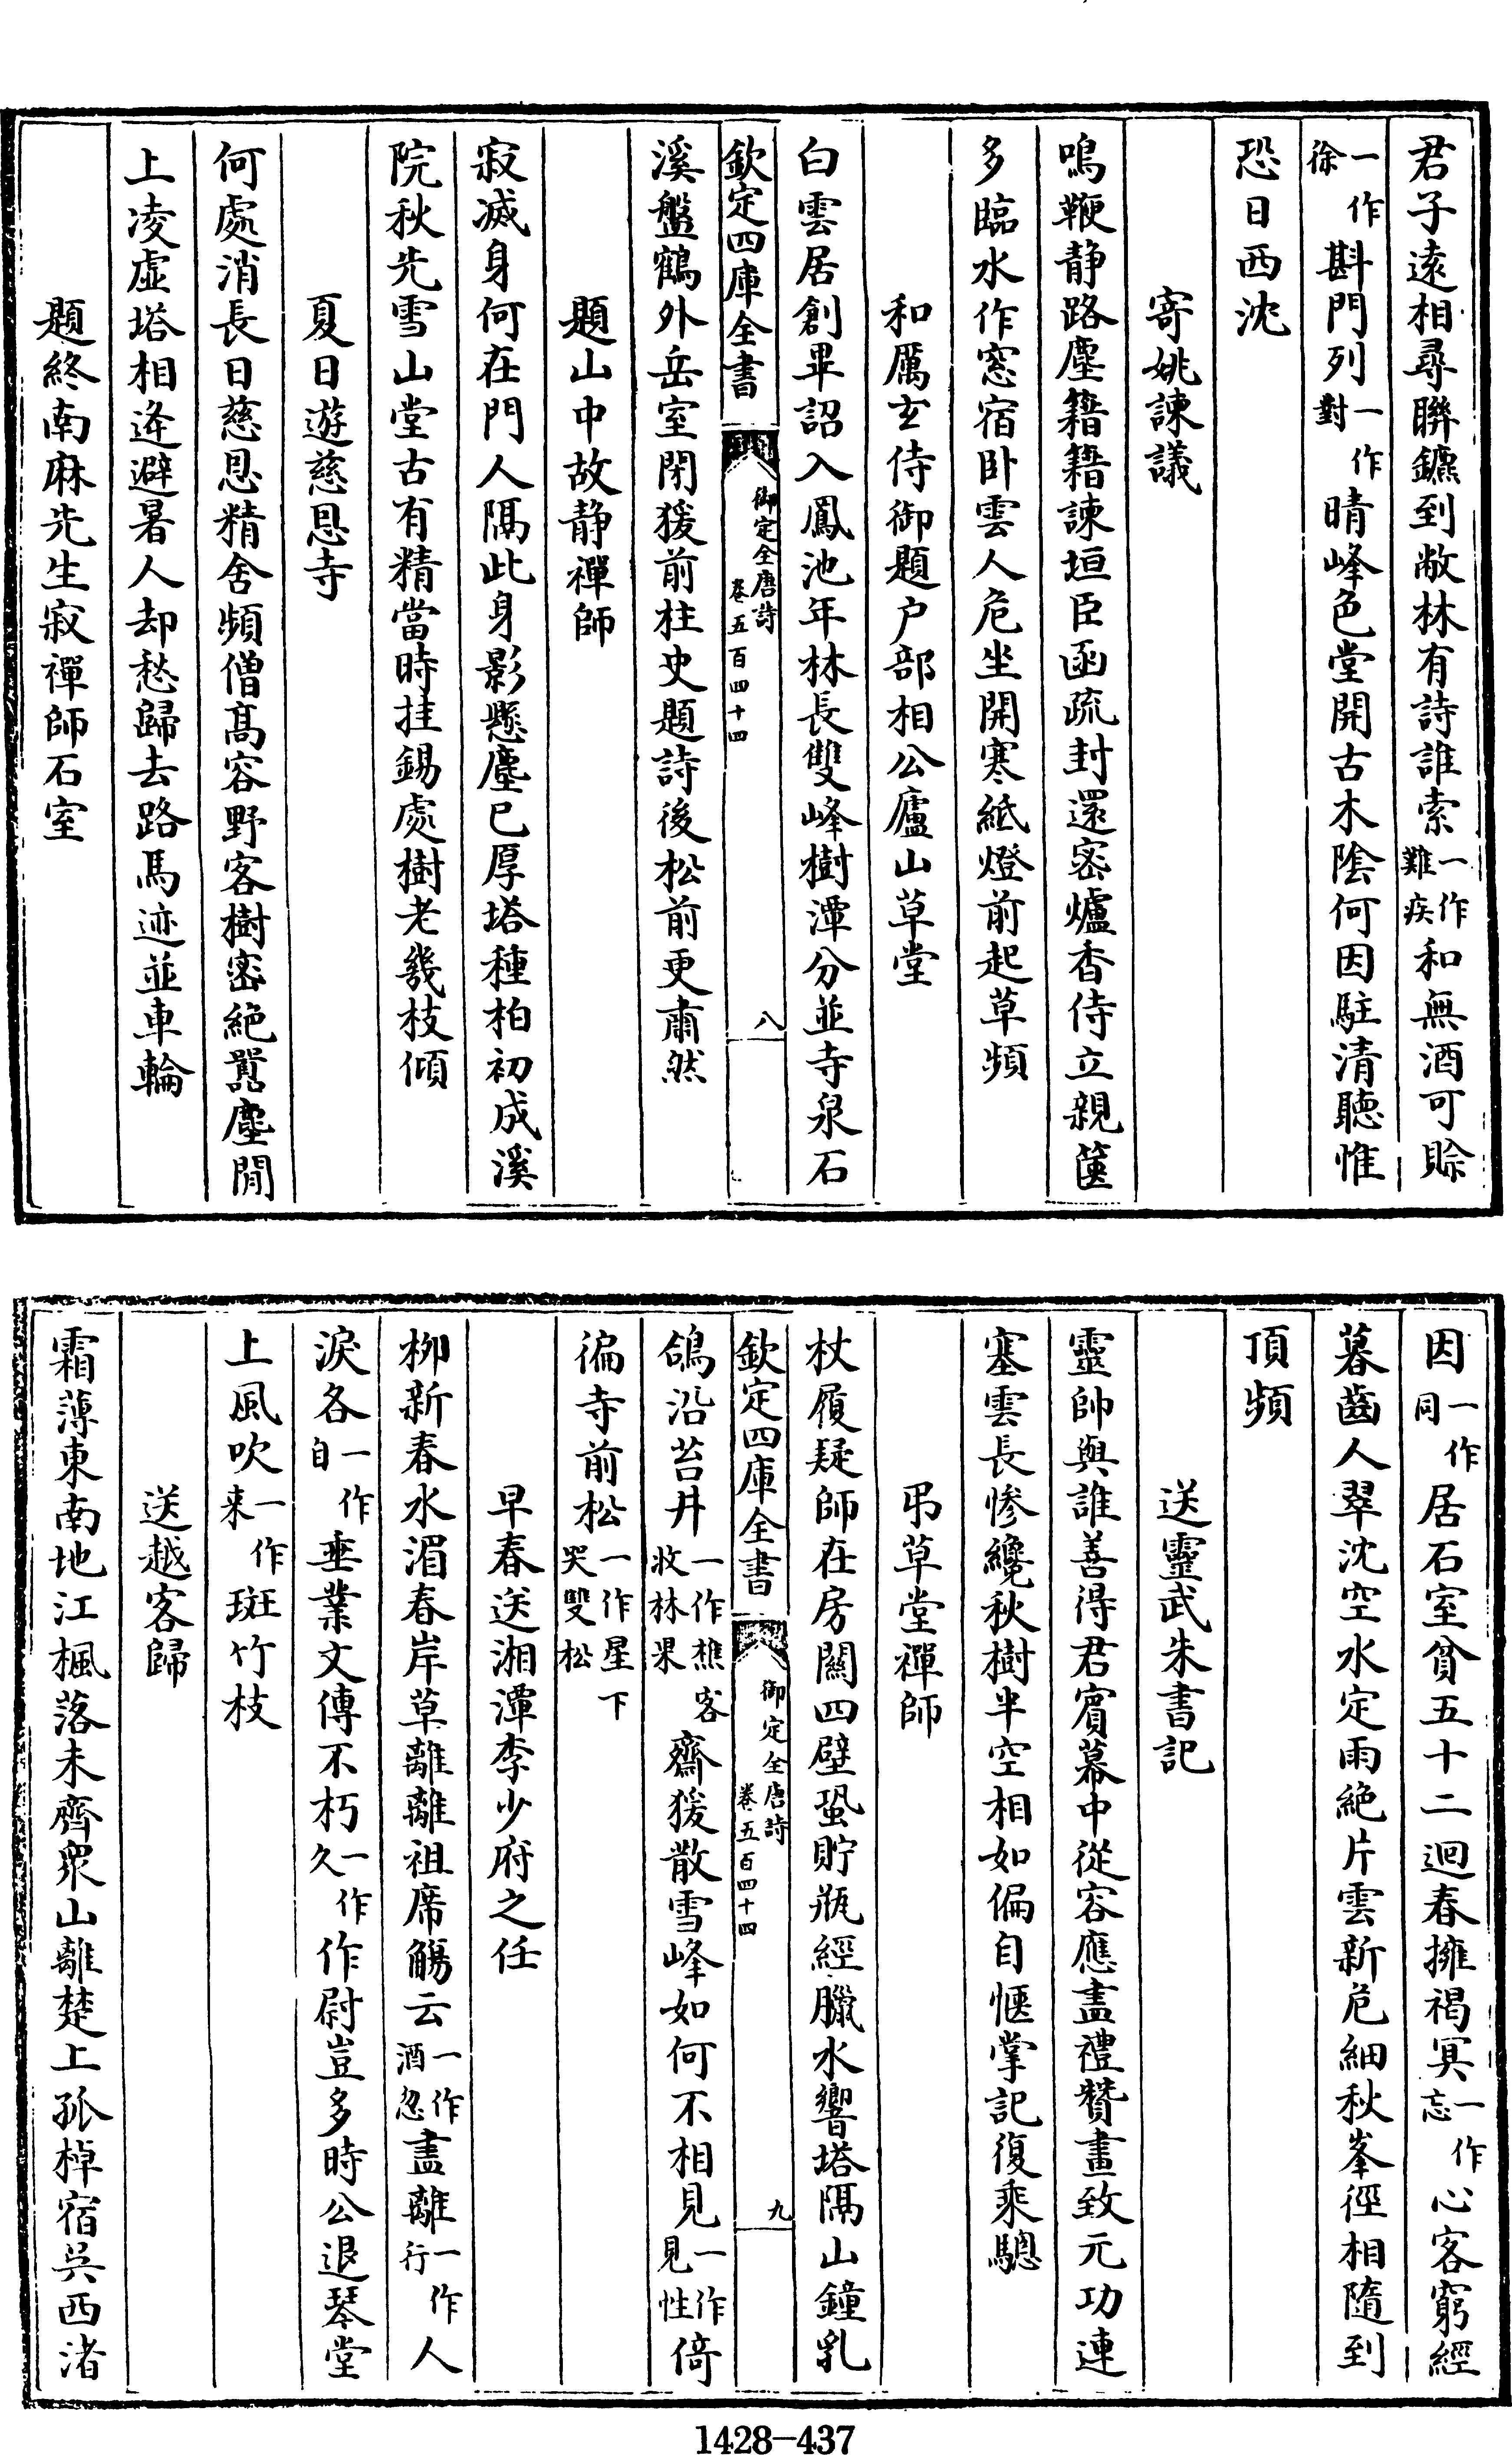 君子遠相尋聯鑣到敝林有詩誰索一作難疾和無酒可賒
一作徐斟門列一作對晴峰色堂開古木陰何因駐清聽惟
恐日西沈
寄姚諫議
鳴鞭静路塵籍籍諫垣臣函疏封還密爐香侍立親篋
多臨水作窓宿卧雲人危坐開寒紙燈前起草頻
和厲玄侍御題户部相公廬山草堂
白雲居創畢詔入鳳池年林長雙峰樹潭分並寺泉石
欽定四庫全書 御定全唐詩 卷五百四十四 八
溪盤鶴外岳室閉猨前柱史題詩後松前更肅然
題山中故静禪師
寂滅身何在門人隔此身影懸塵已厚塔種柏初成溪
院秋先雪山堂古有精當時挂錫處樹老幾枝傾
夏日遊慈恩寺
何處消長日慈恩精舍頻僧髙容野客樹密絶嚻塵閒
上凌虛塔相逄避暑人却愁歸去路馬迹並車輪
題終南麻先生寂禪師石室
因一作同居石室貧五十二迴春擁褐冥一作忘心客窮經
暮齒人翠沈空水定雨絶片雲新危細秋峯徑相隨到
頂頻
送靈武朱書記
靈帥與誰善得君賓幕中從容應盡禮贊畫致元功連
塞雲長慘纔秋樹半空相如偏自愜掌記復乘驄
弔草堂禪師
杖履疑師在房關四壁蛩貯瓶經臘水響塔隔山鐘乳
欽定四庫全書 御定全唐詩 卷五百四十四 九
鴿沿苔井一作樵客收林果齋猨散雪峰如何不相見一作見性倚
徧寺前松一作星下哭雙松
早春送湘潭李少府之任
栁新春水湄春岸草離離祖席觴云一作酒忽盡離一作行人
淚各一作自垂業文傳不朽一作久作尉豈多時公退琴堂
上風吹一作来斑竹枝
送越客歸
霜薄東南地江楓落未齊衆山離楚上孤棹宿吳西渚
1428-437